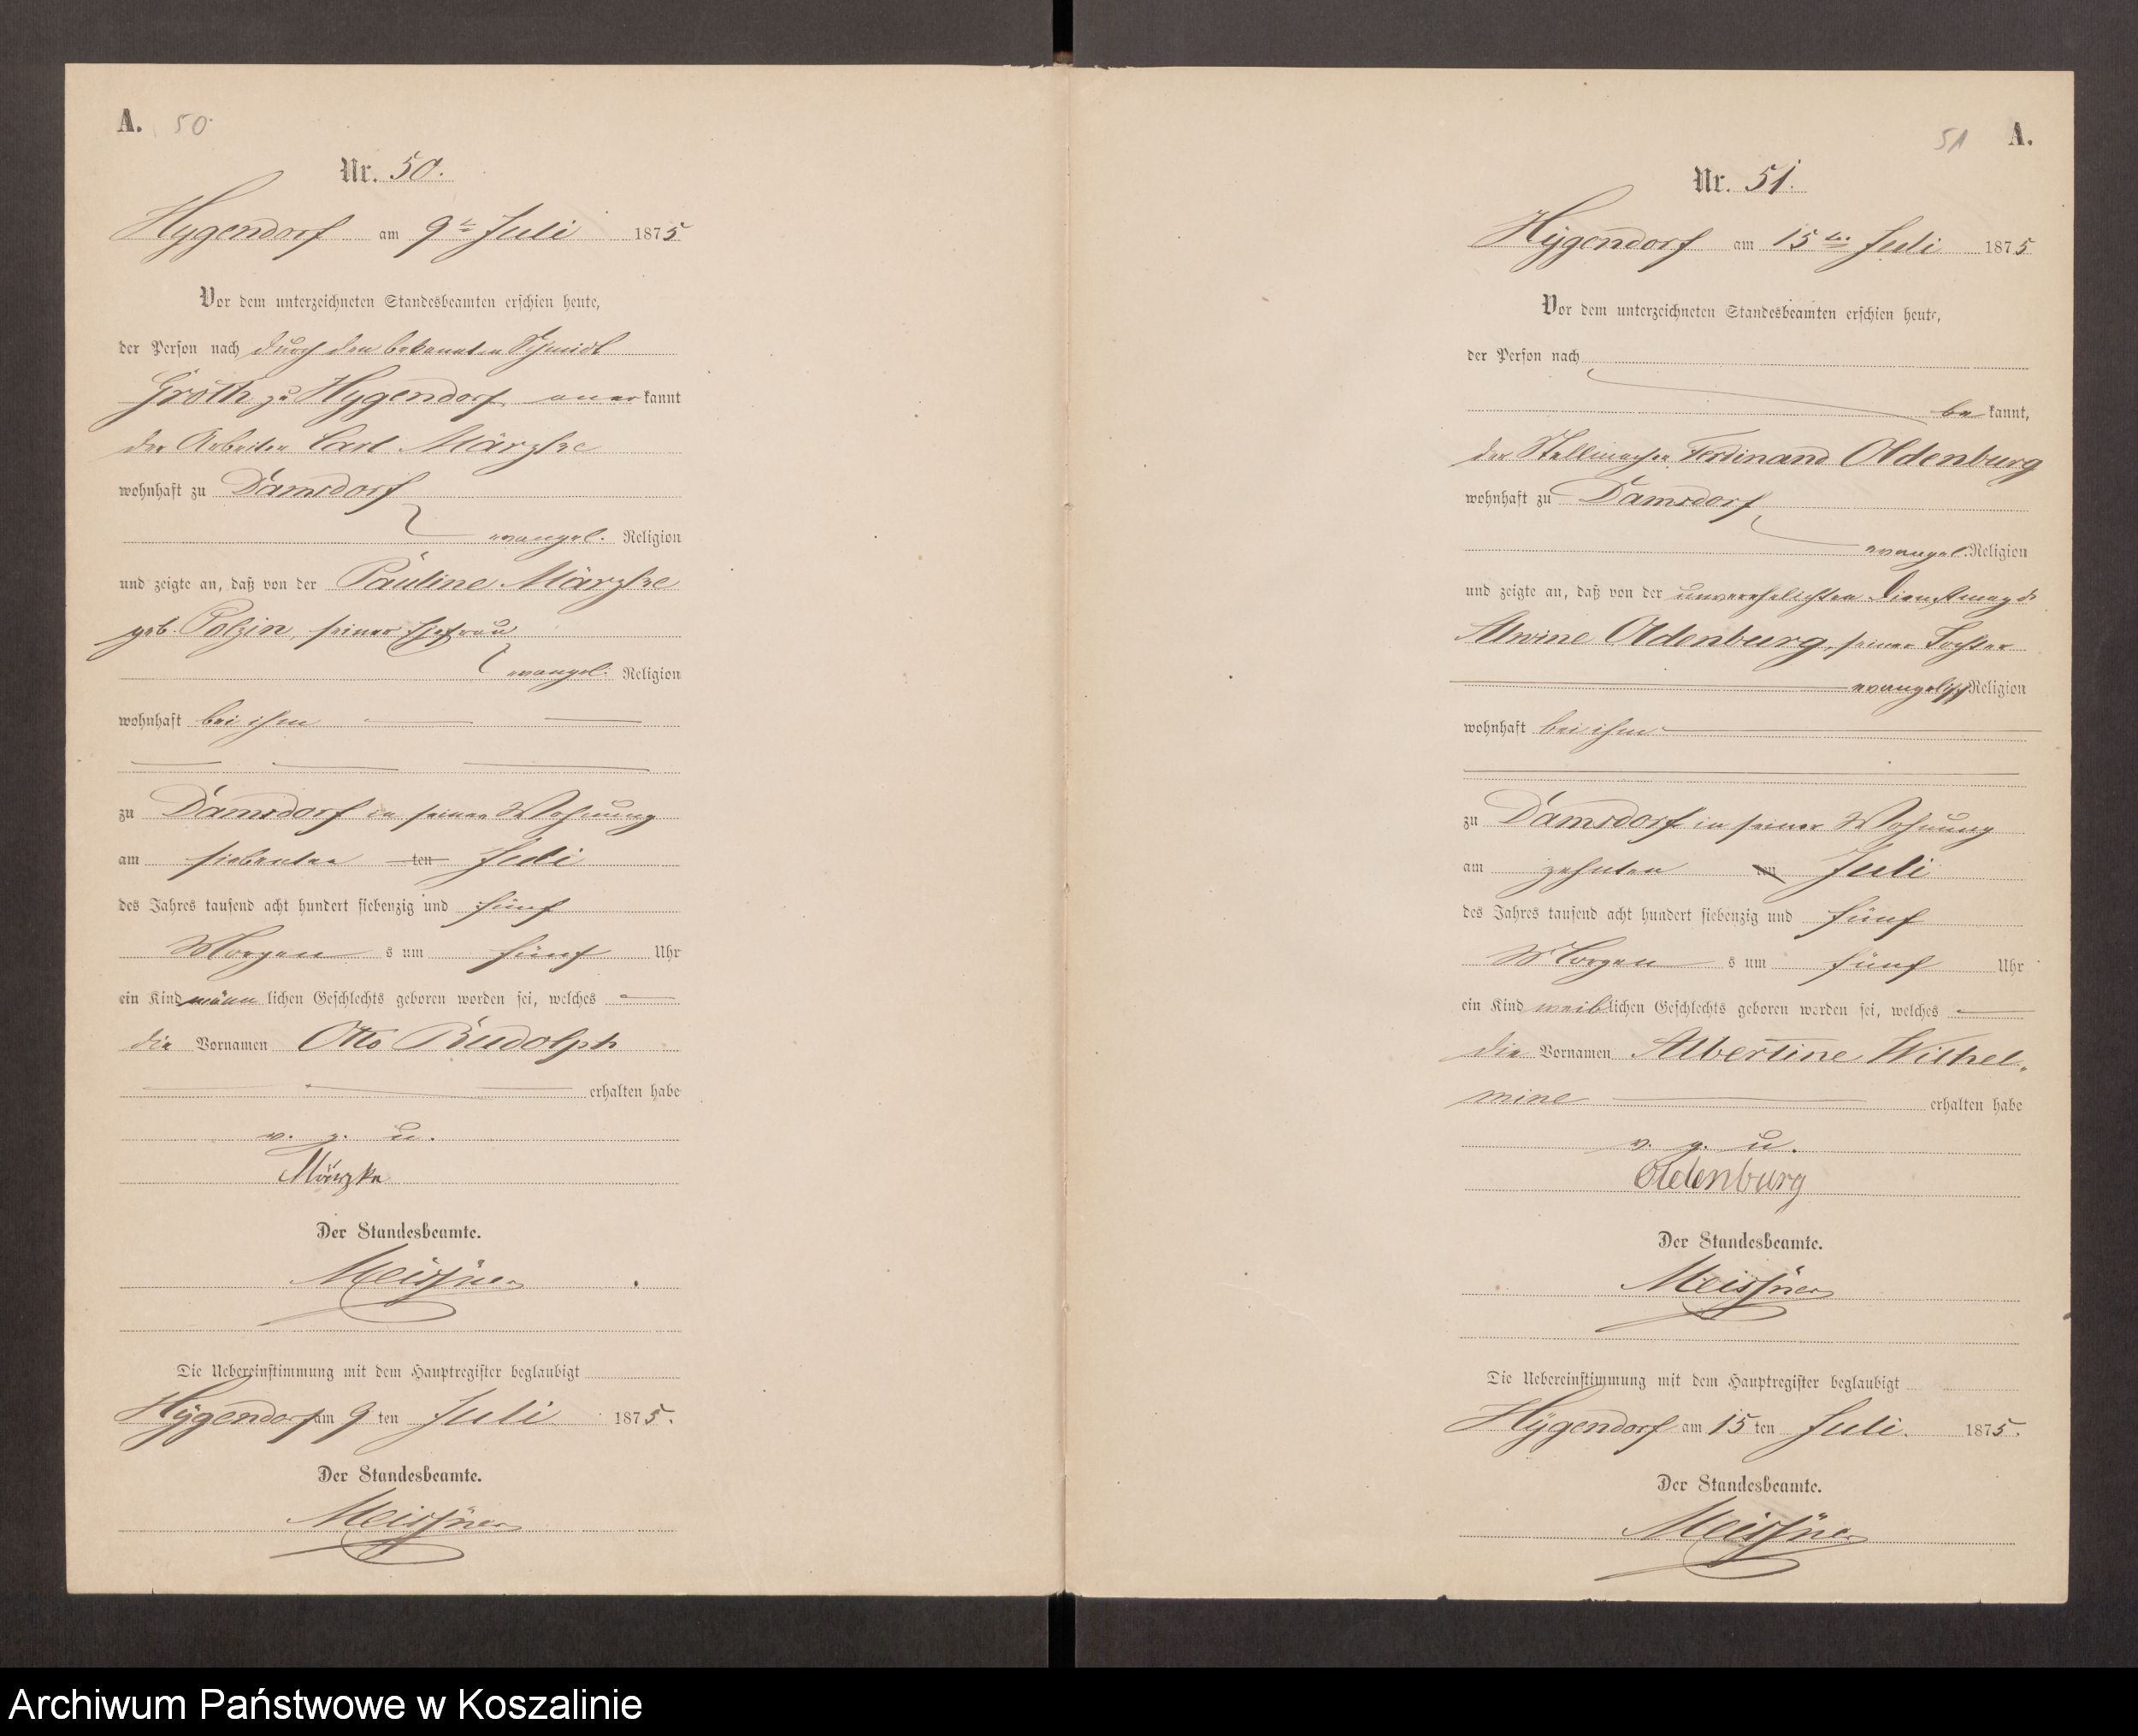 A. 50
Nr. 50.
Hygendorf am 9ten Juli 1875
Vor dem unterzeichneten Standesbeamten erschien heute,
der Person nach durch den bekannten Schmidt
Groth zu Hygendorf anerkannt
der Arbeiter Carl Märzke
wohnhaft zu Damsdorf
evangel. Religion
und zeigte an, daß von der Pauline Märzke
geb. Polzin, seiner Ehefrau
evangel. Religion
wohnhaft bei ihm
zu Damsdorf in seiner Wohnung
am siebenten ten Juli
des Jahres tausend acht hundert siebenzig und fünf
Morgen s um fünf Uhr
ein Kind männlichen Geschlechts geboren worden sei, welches
die Vornamen Otto Rudolph
erhalten habe
v. g. u.
Märzke
Der Standesbeamte.
Meissner
Die Uebereinstimmung mit dem Hauptregister beglaubigt
Hygendorf am 9 ten Juli 1875.
Der Standesbeamte.
Meissner
51 A.
Nr. 51.
Hygendorf am 15ten Juli 1875
Vor dem unterzeichneten Standesbeamten erschien heute,
der Person nach
bekannt,
der Stellmacher Ferdinand Oldenburg
wohnhaft zu Damsdorf
evangel. Religion
und zeigte an, daß von der unverehelichten Dienstmagd
Alwine Oldenburg, seiner Tochter
evangelisch Religion
wohnhaft bei ihm
zu Damsdorf in seiner Wohnung
am zehnten ten Juli
des Jahres tausend acht hundert siebenzig und fünf
Morgen s um fünf Uhr
ein Kind weiblichen Geschlechts geboren worden sei, welches
die Vornamen Albertine Wilhel-
mine erhalten habe
v. g. u.
Oldenburg
Der Standesbeamte.
Meissner
Die Uebereinstimmung mit dem Hauptregister beglaubigt
Hygendorf am 15 ten Juli. 1875.
Der Standesbeamte.
Meissner
Archiwum Państwowe w Koszalinie